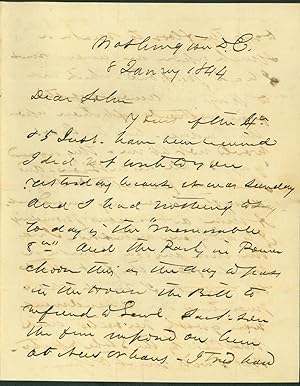 Washington D.C.
8 Janry 1844
Dear John
Yours of the 4th
& 5 Inst. have been received
I did not write to you
yesterday because it was Sunday
and I had nothing to say
to day is the "memorable
8th" And the Party in Power
choose this as the day to pass
in the House the Bill to
refund to Genl Jackson
the fine imposed on him
at New Orleans - I tried hard